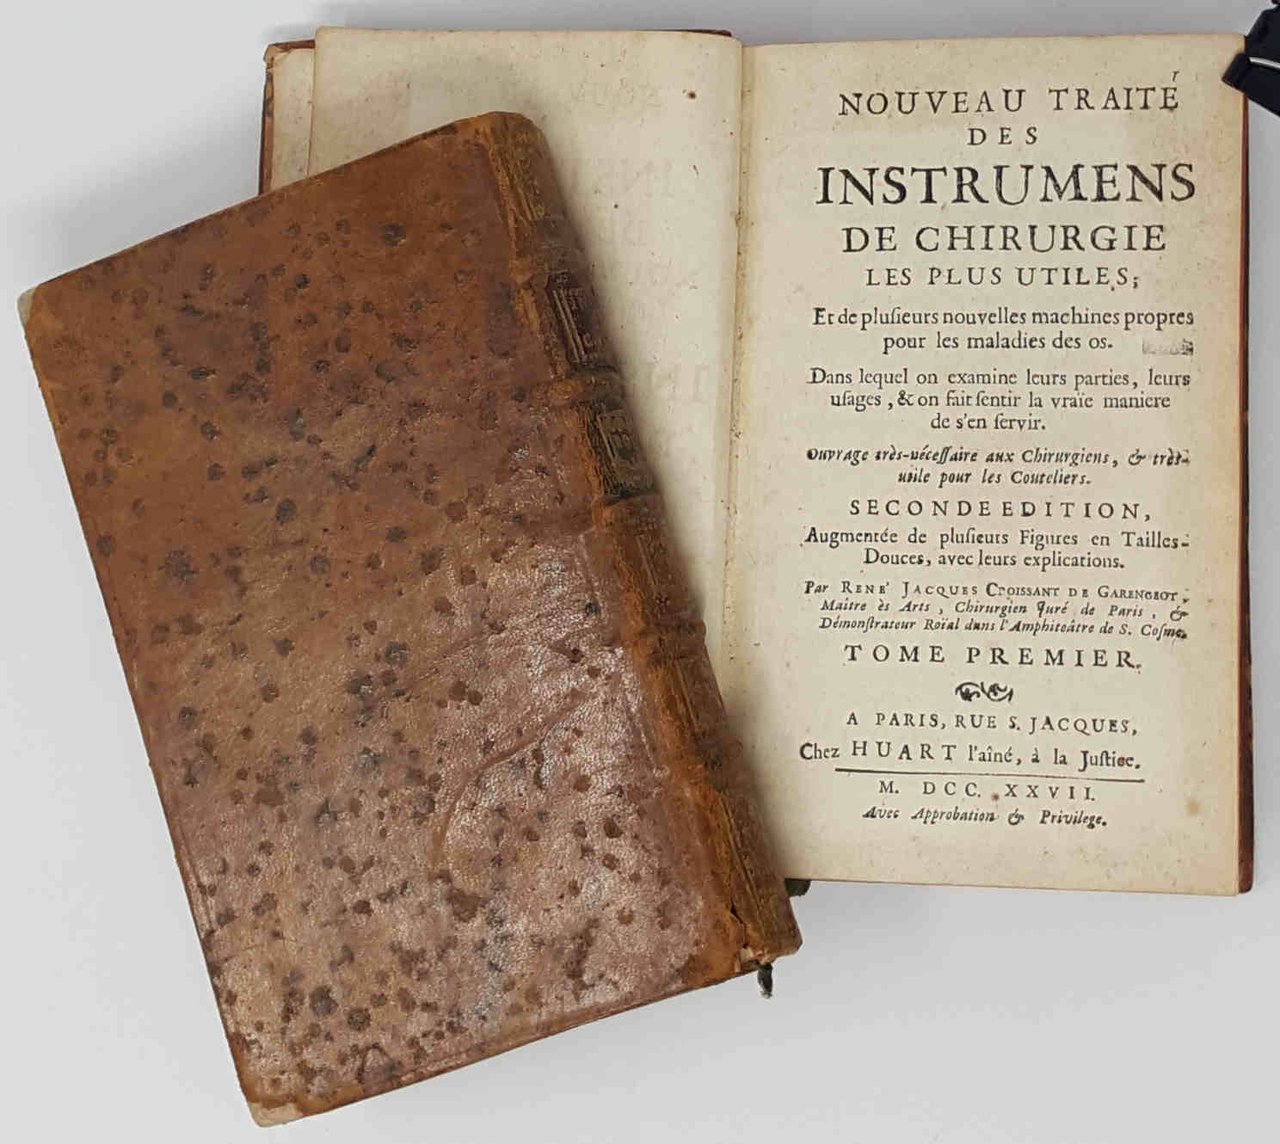 NOUVEAU TRAITÉ
DES
INSTRUMENS
DE CHIRURGIE
LES PLUS UTILES;
Et de pluſieurs nouvelles machines propres
pour les maladies des os.
Dans lequel on examine leurs parties, leurs
uſages, & on fait ſentir la vraïe maniere
de s'en ſervir.
Ouvrage très-néceſſaire aux Chirurgiens, & très-
utile pour les Couteliers.
SECONDE EDITION,
Augmentée de pluſieurs Figures en Tailles-
Douces, avec leurs explications.
Par RENE' JACQUES CROISSANT DE GARENGEOT,
Maître ès Arts, Chirurgien Juré de Paris, &
Démonſtrateur Roïal dans l'Amphiteâtre de S. Coſme.
TOME PREMIER.
A PARIS, RUE S. JACQUES,
Chez HUART l'aîné, à la Juſtice.
M. DCC. XXVII.
Avec Approbation & Privilege.